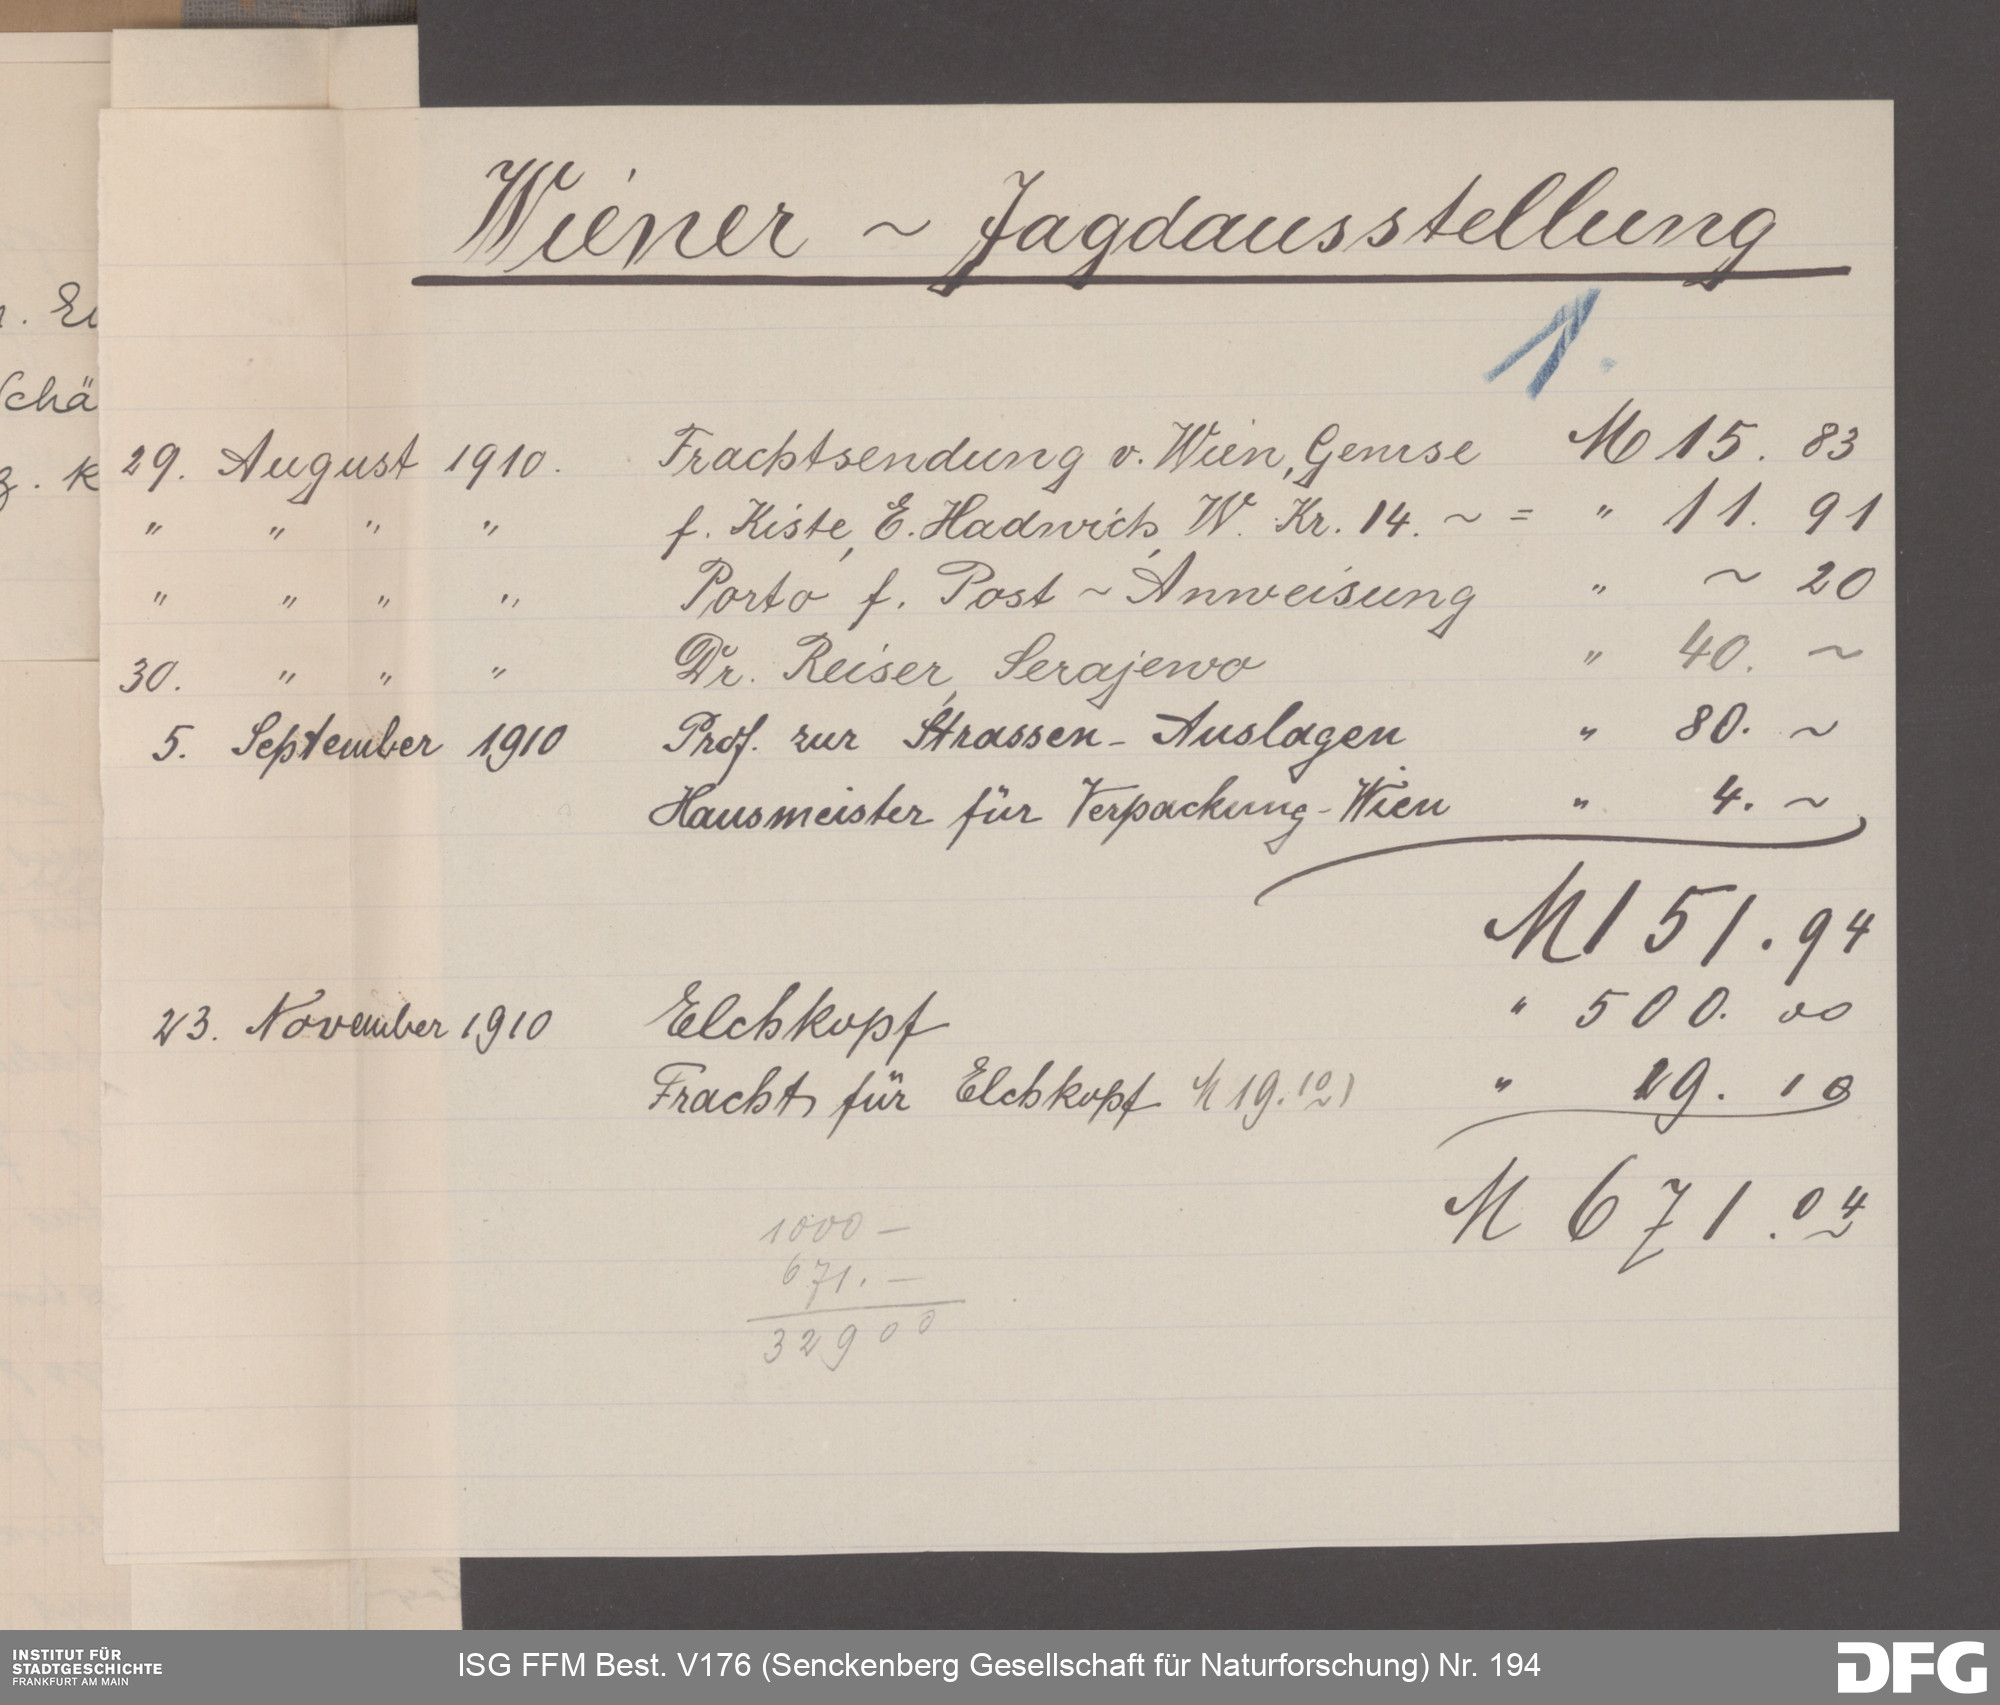 Wiener ~ Jagdausstellung
1.
29. August 1910. Frachtsendung v. Wien, Gemse M 15. 83
" " " " f. Kiste, E. Hadwich, W. Kr. 14. ~ = " 11. 91
" " " " Porto f. Post ~ Anweisung " ~ 20
30. " " " Dr. Reiser, Serajewo " 40. ~
5. September 1910 Prof. zur Strassen - Auslagen " 80. ~
Hausmeister für Verpackung - Wien " 4. ~
M 151. 94
23. November 1910 Elchkopf " 500. 00
Fracht für Elchkopf M 19. 10) " 19. 10
M 671. 04
1000 —
671. —
329 00
. Ei
Schä
. K
INSTITUT FÜR
STADTGESCHICHTE
FRANKFURT AM MAIN
ISG FFM Best. V176 (Senckenberg Gesellschaft für Naturforschung) Nr. 194
DFG